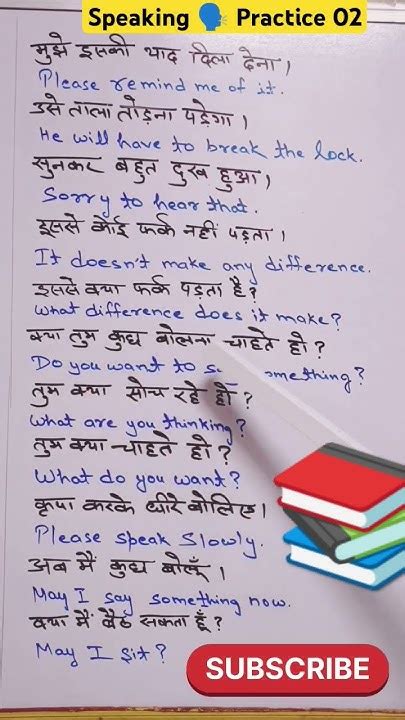 Speaking 🗣️ Practice 02
मुझे इसकी याद दिला देना।
Please remind me of it.
उसे ताला तोड़ना पड़ेगा।
He will have to break the lock.
सुनकर बहुत दुख हुआ।
Sorry to hear that.
इससे कोई फर्क नहीं पड़ता।
It doesn't make any difference.
इससे क्या फर्क पड़ता है?
What difference does it make?
क्या तुम कुछ बोलना चाहते हो?
Do you want to something?
तुम क्या सोच रहे हो?
What are you thinking?
तुम क्या चाहते हो?
What do you want?
कृपा करके धीरे बोलिए।
Please speak slowly.
अब मैं कुछ बोलूँ।
May I say something now.
क्या मैं बैठ सकता हूँ?
May I sit?
SUBSCRIBE